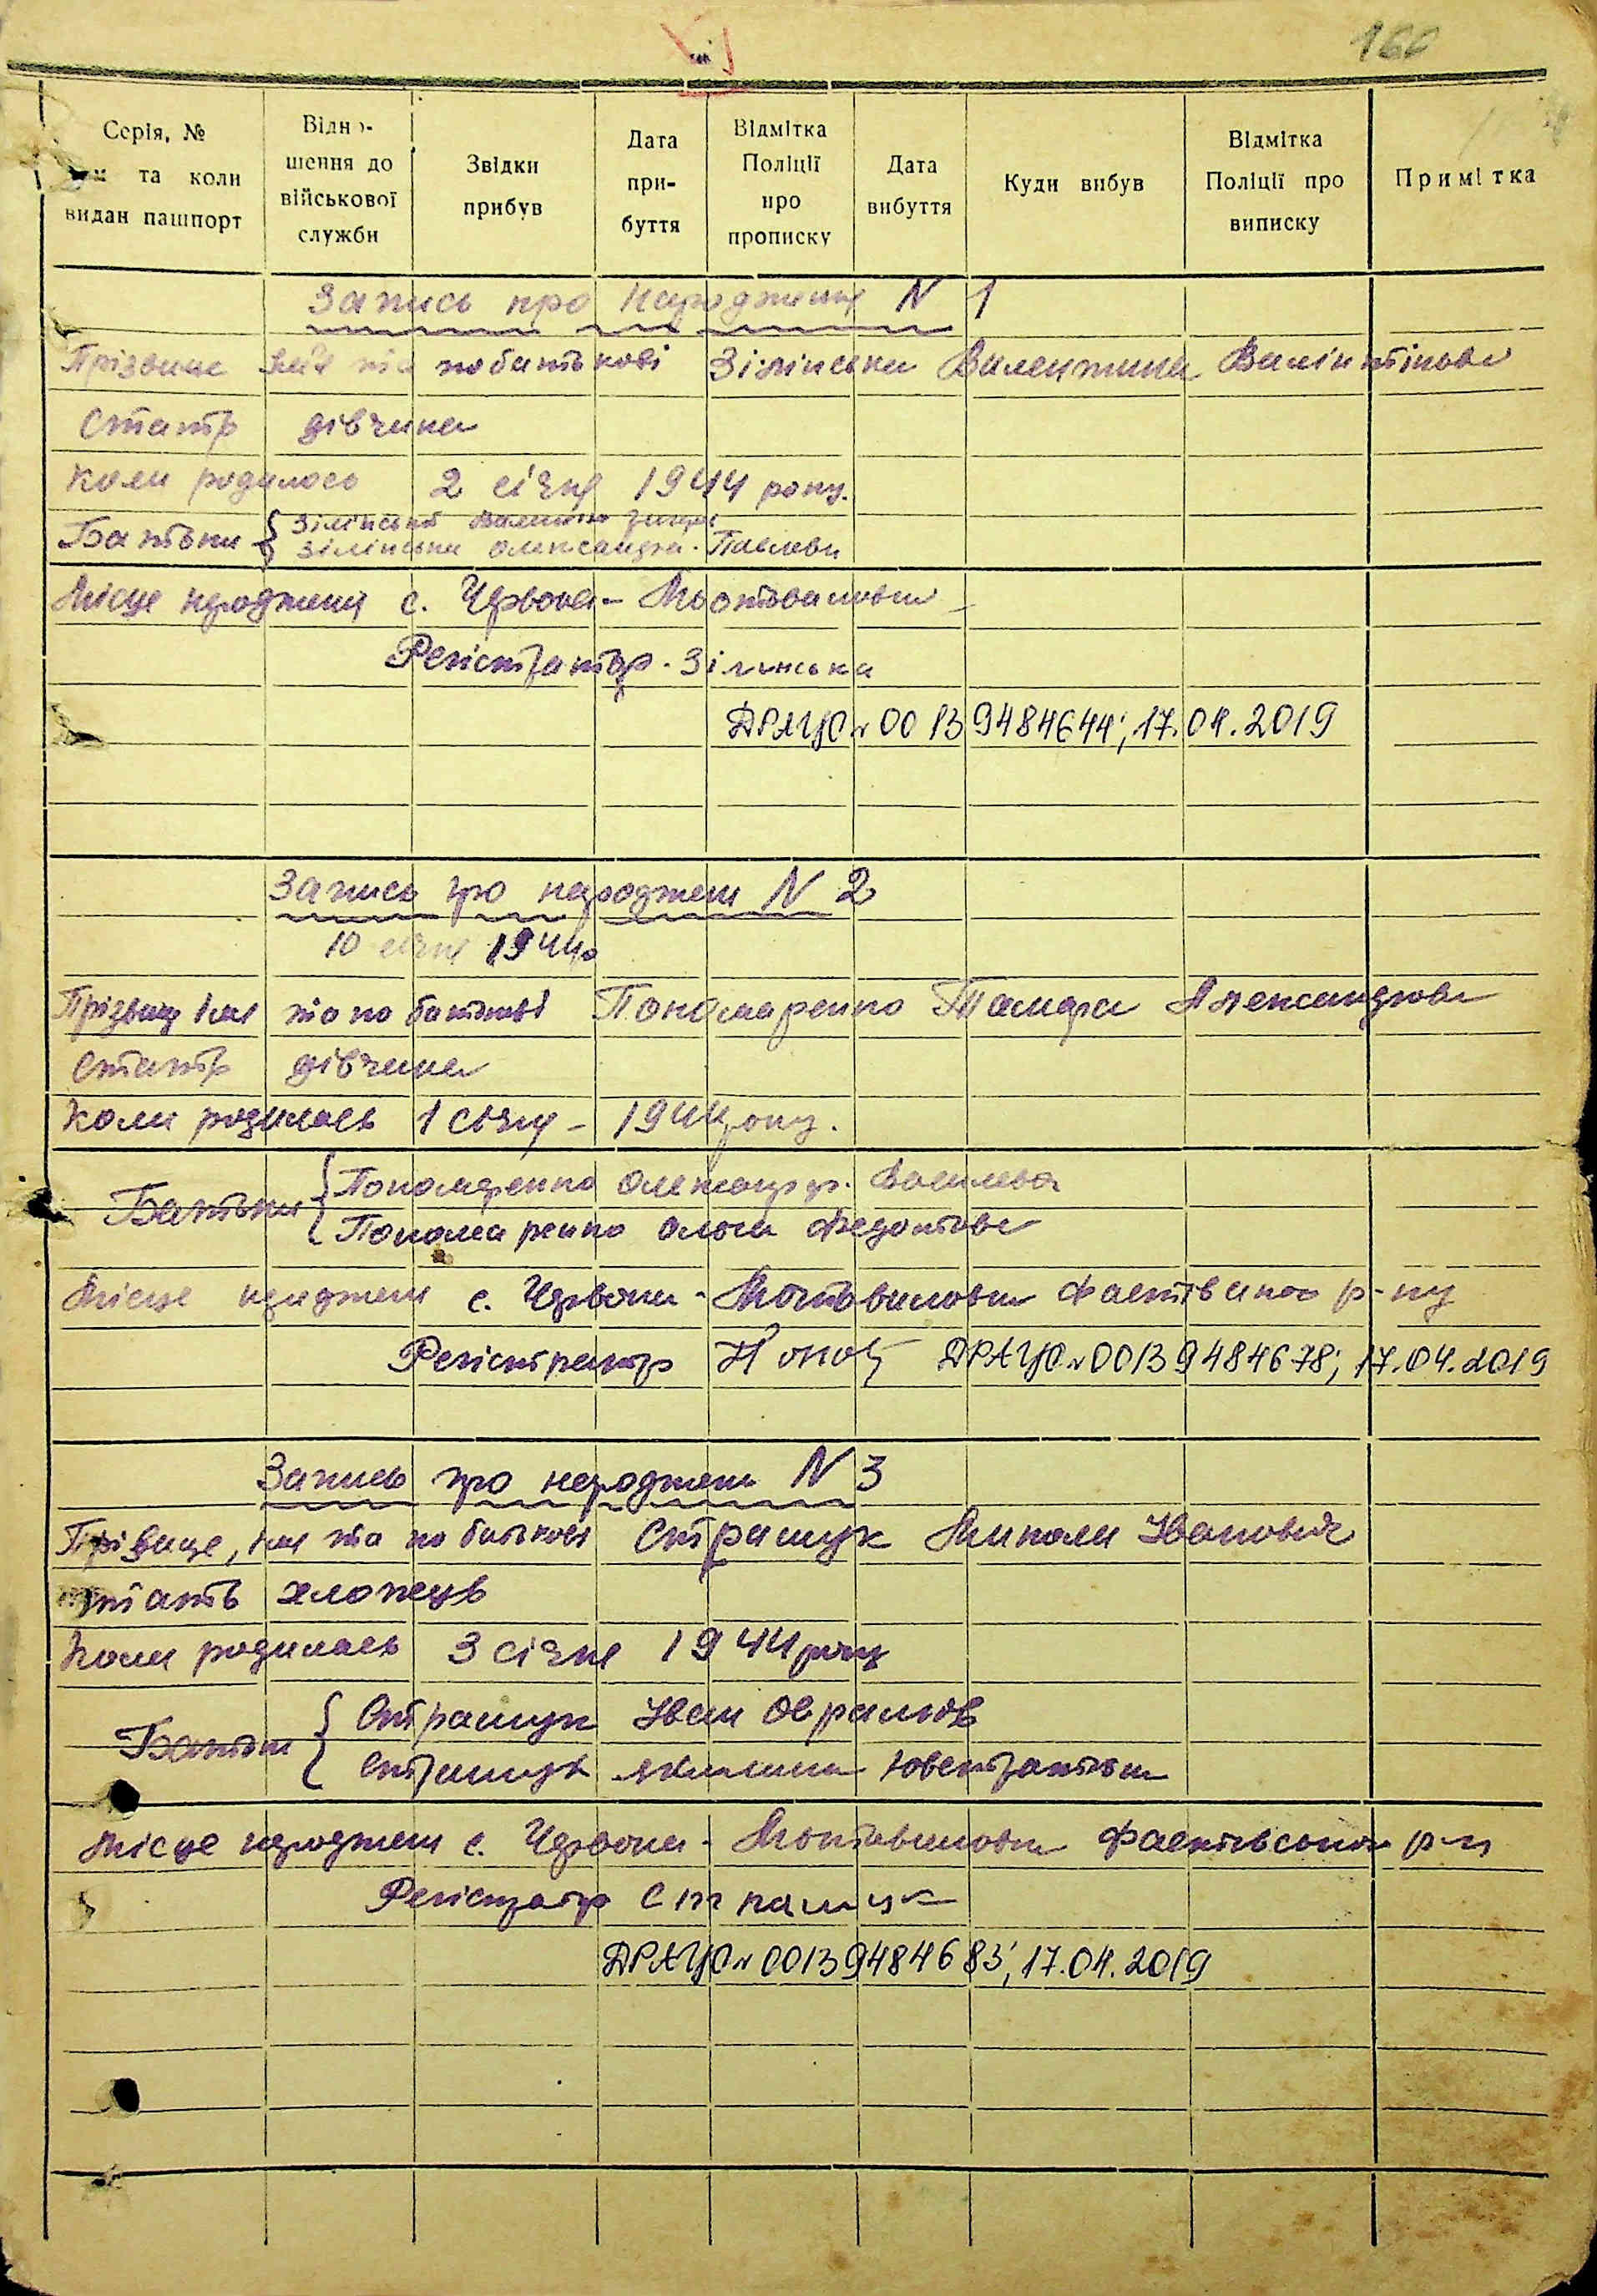 160
Серія, № та коли видан пашпорт
Відношення до військової служби
Звідки прибув
Дата прибуття
Відмітка Поліції про прописку
Дата вибуття
Куди вибув
Відмітка Поліції про виписку
Примітка
Запись про народження N 1
Прізвище імя та по батькові Зілінська Валентина Валінтінова
Стать дівчина
Коли родилось 2 січня 1944 року.
Батьки Зілінський
Зілінська Олександра Павлова
Місце народження с. Червона-Мотовиловка
Регістратор. Зілинська
ДРАЦСг 00139484644; 17.04.2019
Запись про народжен N 2
10 січня 1944р
Прізвище імя та по батькові Пономаренко Тамара Александрова
Стать дівчина
Коли родилась 1 січня - 1944 року.
Батьки Пономаренко Олександр. Васильев
Пономаренко Ольга Федотова
Місце народжен с. Червона-Мотовиловка Фастівского р-ну
Регістратор ДРАЦСг 00139484678; 17.04.2019
Запись про народжен N 3
Прізвище, імя та по батькові Страшук Микола Іванович
Стать хлопець
Коли родилась 3 січня 1944 року
Батьки Страшук Іван Оврамов
Страшук
Місце народжен с. Червона-Мотовиловка Фастівского р-н
Регістратор Страшук
ДРАЦСг 00139484683; 17.04.2019